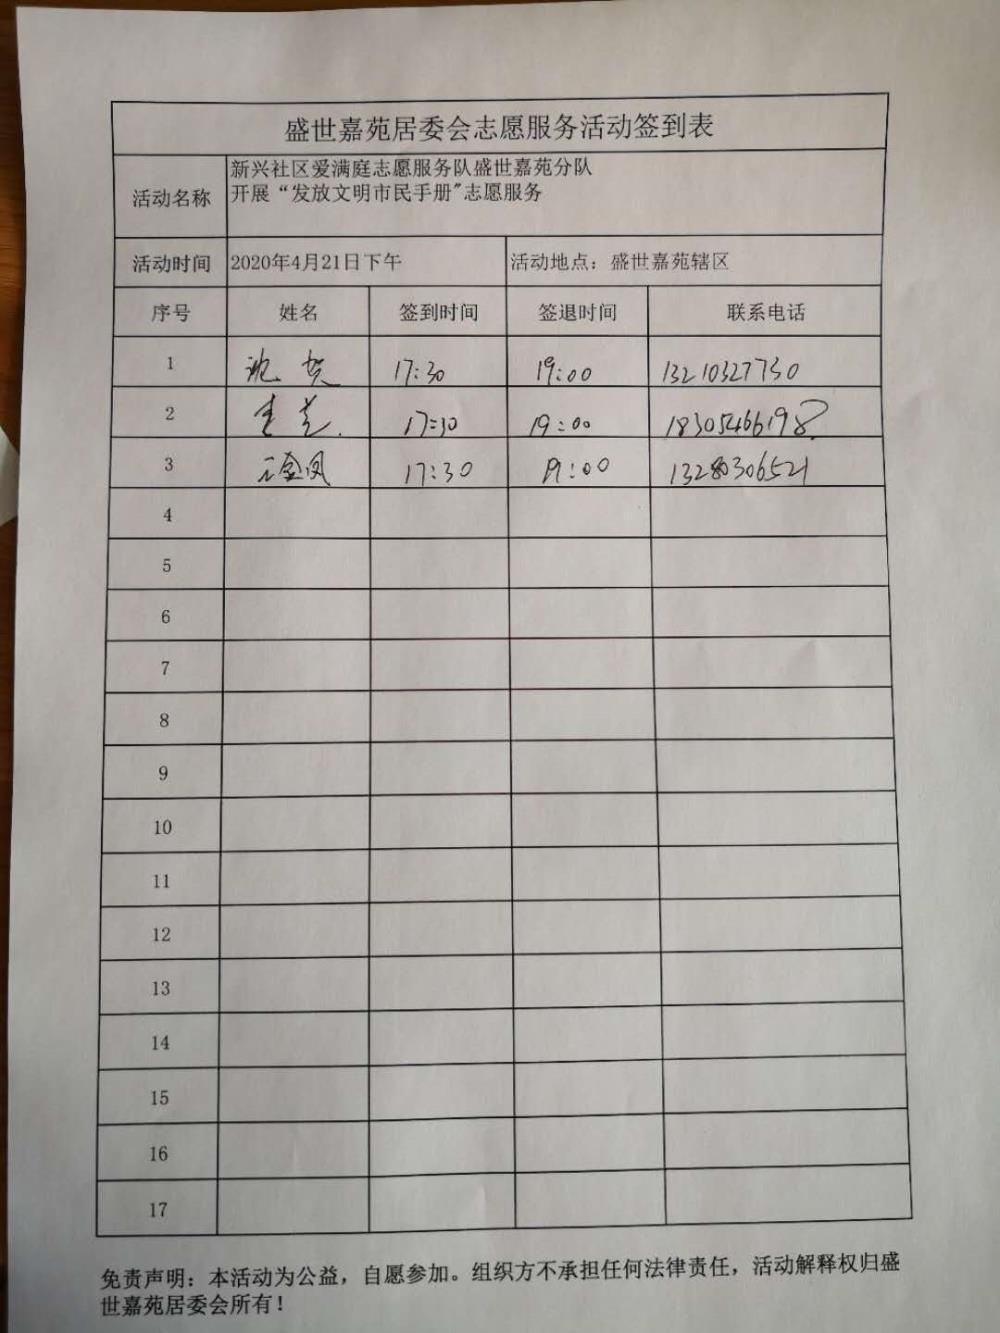 盛世嘉苑居委会志愿服务活动签到表
活动名称 新兴社区爱满庭志愿服务队盛世嘉苑分队
开展“发放文明市民手册"志愿服务
活动时间 2020年4月21日下午 活动地点：盛世嘉苑辖区
序号 姓名 签到时间 签退时间 联系电话
1 17:30 19:00 13210327730
2 17:30 19:00 18305466198
3 17:30 19:00 13280306521
4
5
6
7
8
9
10
11
12
13
14
15
16
17
免责声明：本活动为公益，自愿参加。组织方不承担任何法律责任，活动解释权归盛
世嘉苑居委会所有！